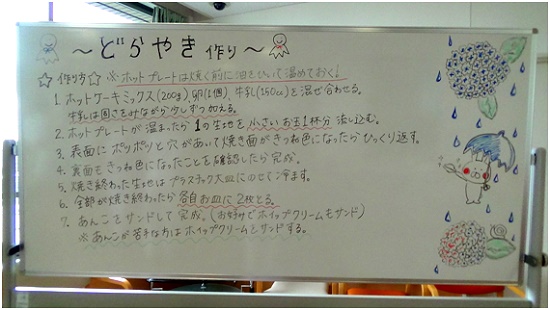 ～どらやき作り～
☆作り方☆ ※ホットプレートは焼く前に油をひいて温めておく!
1. ホットケーキミックス(200g)、卵(1個)、牛乳(150cc)を混ぜ合わせる。
牛乳は固さをみながら少しずつ加える。
2. ホットプレートが温まったら1の生地を小さいお玉1杯分流し込む。
3. 表面にポツポツと穴があいて焼き面がきつね色になったらひっくり返す。
4. 裏面もきつね色になったことを確認したら完成。
5. 焼き終わった生地はプラスチック大皿にのせて冷ます。
6. 全部が焼き終わったら各自お皿に2枚とる。
7. あんこをサンドして完成。(お好みでホイップクリームもサンド)
※あんこが苦手な方はホイップクリームをサンドする。